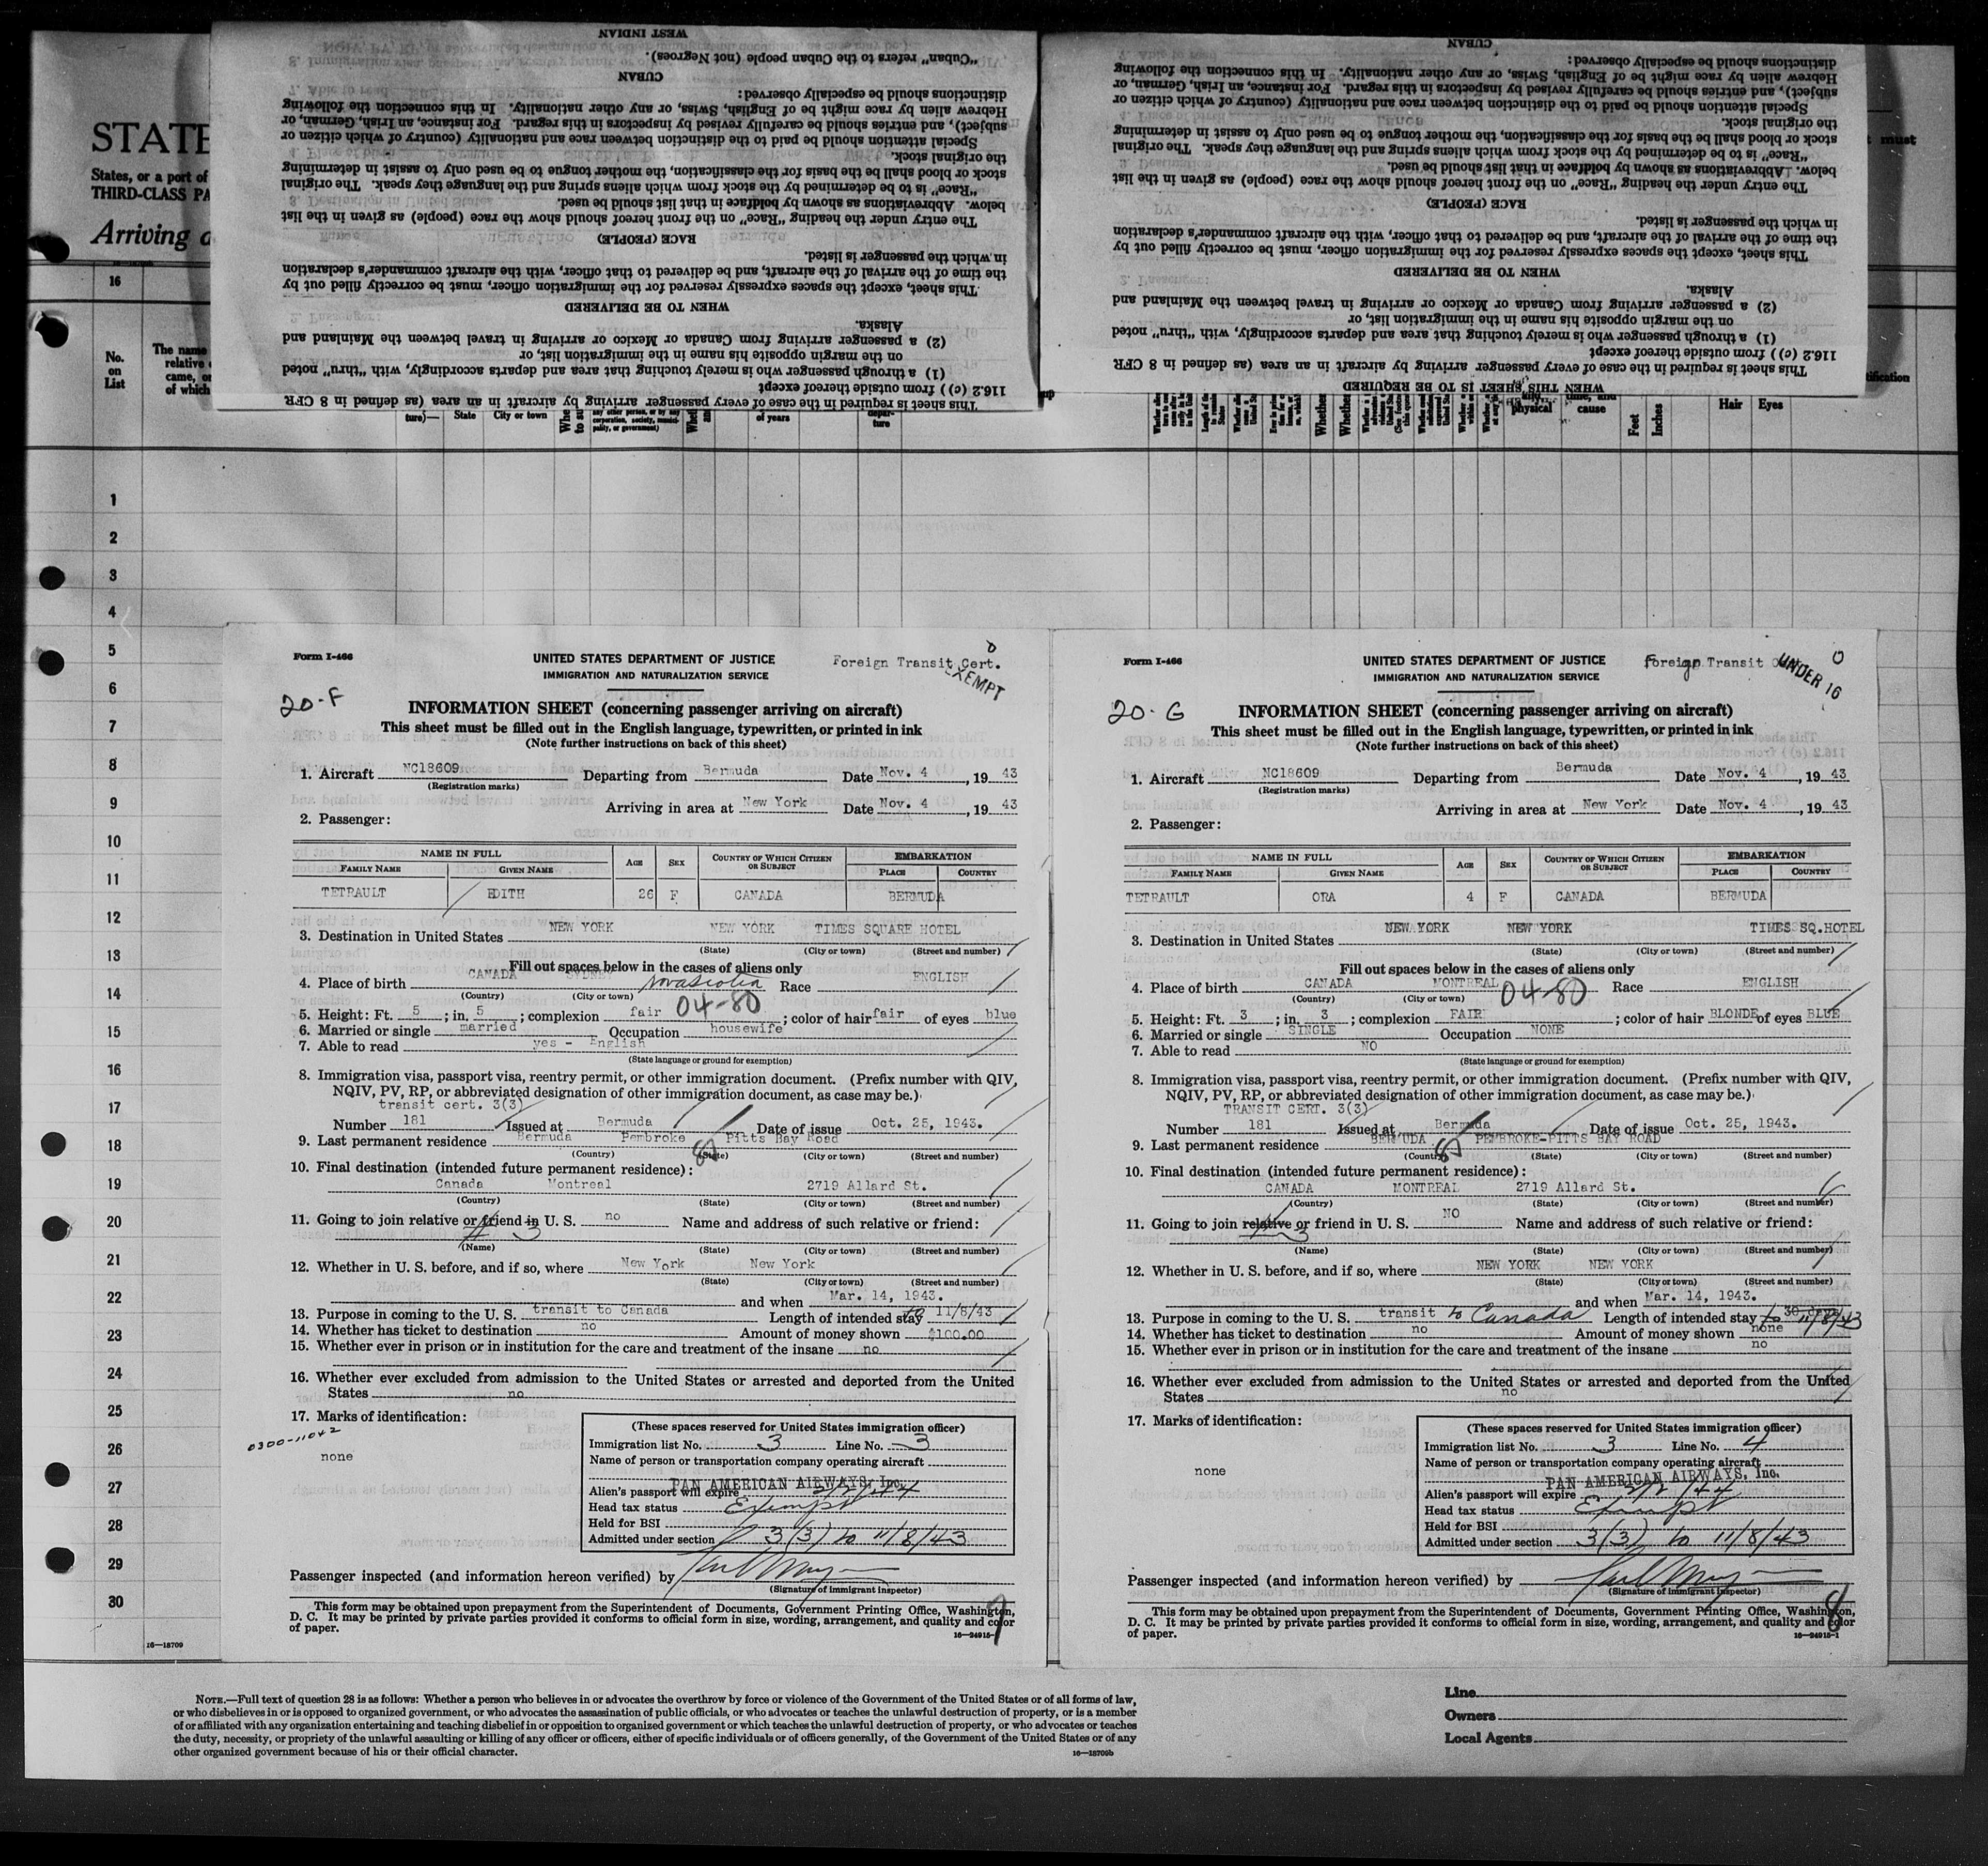 STATE
States, or a port of
THIRD-CLASS PA
Arriving a
16
No.
on
List
The name
relative
came, or
of which
WEST INDIAN
"Cuban" refers to the Cuban people (not Negroes).
CUBAN
distinctions should be especially observed:
Hebrew alien by race might be of English, Swiss, or any other nationality. In this connection the following
subject), and entries should be carefully revised by inspectors in this regard. For instance, an Irish, German, or
Special attention should be paid to the distinction between race and nationality (country of which citizen or
the original stock.
stock or blood shall be the basis for the classification, the mother tongue to be used only to assist in determining
"Race" is to be determined by the stock from which aliens spring and the language they speak. The original
below. Abbreviations as shown by boldface in that list should be used.
The entry under the heading "Race" on the front hereof should show the race (people) as given in the list
RACE (PEOPLE)
in which the passenger is listed.
the time of the arrival of the aircraft, and be delivered to that officer, with the aircraft commander's declaration
This sheet, except the spaces expressly reserved for the immigration officer, must be correctly filled out by
WHEN TO BE DELIVERED
Alaska.
(2) a passenger arriving from Canada or Mexico or arriving in travel between the Mainland and
on the margin opposite his name in the immigration list, or
(1) a through passenger who is merely touching that area and departs accordingly, with "thru" noted
116.2 (c)) from outside thereof except
This sheet is required in the case of every passenger arriving by aircraft in an area (as defined in 8 CFR
CUBAN
distinctions should be especially observed:
Hebrew alien by race might be of English, Swiss, or any other nationality. In this connection the following
subject), and entries should be carefully revised by inspectors in this regard. For instance, an Irish, German, or
Special attention should be paid to the distinction between race and nationality (country of which citizen or
the original stock.
stock or blood shall be the basis for the classification, the mother tongue to be used only to assist in determining
"Race" is to be determined by the stock from which aliens spring and the language they speak. The original
below. Abbreviations as shown by boldface in that list should be used.
The entry under the heading "Race" on the front hereof should show the race (people) as given in the list
RACE (PEOPLE)
in which the passenger is listed.
the time of the arrival of the aircraft, and be delivered to that officer, with the aircraft commander's declaration
This sheet, except the spaces expressly reserved for the immigration officer, must be correctly filled out by
WHEN TO BE DELIVERED
Alaska.
(2) a passenger arriving from Canada or Mexico or arriving in travel between the Mainland and
on the margin opposite his name in the immigration list, or
(1) a through passenger who is merely touching that area and departs accordingly, with "thru" noted
116.2 (c)) from outside thereof except
This sheet is required in the case of every passenger arriving by aircraft in an area (as defined in 8 CFR
WHEN THIS SHEET IS TO BE REQUIRED
must
ture)— State City or town of years depar-
ture
physical cause Feet Inches Hair Eyes
1
2
3
4
5
6
7
8
9
10
11
12
13
14
15
16
17
18
19
20
21
22
23
24
25
26
27
28
29
30
16—18709
Form I-466
UNITED STATES DEPARTMENT OF JUSTICE
IMMIGRATION AND NATURALIZATION SERVICE
Foreign Transit Cert. 0
EXEMPT
20-F
INFORMATION SHEET (concerning passenger arriving on aircraft)
This sheet must be filled out in the English language, typewritten, or printed in ink
(Note further instructions on back of this sheet)
1. Aircraft NC18609 Departing from Bermuda Date Nov. 4, 19 43
(Registration marks)
Arriving in area at New York Date Nov. 4, 19 43
2. Passenger:
NAME IN FULL AGE SEX COUNTRY OF WHICH CITIZEN OR SUBJECT EMBARKATION
FAMILY NAME GIVEN NAME PLACE COUNTRY
TETRAULT EDITH 26 F CANADA BERMUDA
3. Destination in United States NEW YORK NEW YORK TIMES SQUARE HOTEL
(State) (City or town) (Street and number)
Fill out spaces below in the cases of aliens only
4. Place of birth CANADA SYDNEY Nova Scotia Race ENGLISH
(Country) (City or town) 04-80
5. Height: Ft. 5; in. 5; complexion fair; color of hair fair of eyes blue
6. Married or single married Occupation housewife
7. Able to read yes - English
(State language or ground for exemption)
8. Immigration visa, passport visa, reentry permit, or other immigration document. (Prefix number with QIV,
NQIV, PV, RP, or abbreviated designation of other immigration document, as case may be.)
transit cert. 3(3)
Number 181 Issued at Bermuda Date of issue Oct. 25, 1943.
9. Last permanent residence Bermuda Pembroke Pitts Bay Road
(Country) (State) (City or town) (Street and number)
10. Final destination (intended future permanent residence):
Canada Montreal 2719 Allard St.
(Country) (State) (City or town) (Street and number)
11. Going to join relative or friend in U. S. no Name and address of such relative or friend:
(Name) (State) (City or town) (Street and number)
12. Whether in U. S. before, and if so, where New York New York
(State) (City or town) (Street and number)
and when Mar. 14, 1943.
13. Purpose in coming to the U. S. transit to Canada Length of intended stay to 11/8/43
14. Whether has ticket to destination no Amount of money shown $100.00
15. Whether ever in prison or in institution for the care and treatment of the insane no
16. Whether ever excluded from admission to the United States or arrested and deported from the United
States no
17. Marks of identification:
0300-11042
none
(These spaces reserved for United States immigration officer)
Immigration list No. 3 Line No. 3
Name of person or transportation company operating aircraft
PAN AMERICAN AIRWAYS, Inc.
Alien's passport will expire 2/2/44
Head tax status Exempt
Held for BSI
Admitted under section 3(3) to 11/8/43
Passenger inspected (and information hereon verified) by
(Signature of immigrant inspector)
This form may be obtained upon prepayment from the Superintendent of Documents, Government Printing Office, Washington,
D. C. It may be printed by private parties provided it conforms to official form in size, wording, arrangement, and quality and color
of paper.
16—24915-1
Form I-466
UNITED STATES DEPARTMENT OF JUSTICE
IMMIGRATION AND NATURALIZATION SERVICE
Foreign Transit 0
UNDER 16
20-G
INFORMATION SHEET (concerning passenger arriving on aircraft)
This sheet must be filled out in the English language, typewritten, or printed in ink
(Note further instructions on back of this sheet)
1. Aircraft NC18609 Departing from Bermuda Date Nov. 4, 19 43
(Registration marks)
Arriving in area at New York Date Nov. 4, 19 43
2. Passenger:
NAME IN FULL AGE SEX COUNTRY OF WHICH CITIZEN OR SUBJECT EMBARKATION
FAMILY NAME GIVEN NAME PLACE COUNTRY
TETRAULT ORA 4 F CANADA BERMUDA
3. Destination in United States NEW YORK NEW YORK TIMES SQ.HOTEL
(State) (City or town) (Street and number)
Fill out spaces below in the cases of aliens only
4. Place of birth CANADA MONTREAL Race ENGLISH
(Country) (City or town) 04-80
5. Height: Ft. 3; in. 3; complexion FAIR; color of hair BLONDE of eyes BLUE
6. Married or single SINGLE Occupation NONE
7. Able to read NO
(State language or ground for exemption)
8. Immigration visa, passport visa, reentry permit, or other immigration document. (Prefix number with QIV,
NQIV, PV, RP, or abbreviated designation of other immigration document, as case may be.)
TRANSIT CERT. 3(3)
Number 181 Issued at Bermuda Date of issue Oct. 25, 1943.
9. Last permanent residence BERMUDA PEMBROKE-PITTS BAY ROAD
(Country) (State) (City or town) (Street and number)
10. Final destination (intended future permanent residence):
CANADA MONTREAL 2719 Allard St.
(Country) (State) (City or town) (Street and number)
11. Going to join relative or friend in U. S. NO Name and address of such relative or friend:
(Name) (State) (City or town) (Street and number)
12. Whether in U. S. before, and if so, where NEW YORK NEW YORK
(State) (City or town) (Street and number)
and when Mar. 14, 1943.
13. Purpose in coming to the U. S. transit to Canada Length of intended stay 30 days to 11/8/43
14. Whether has ticket to destination no Amount of money shown none
15. Whether ever in prison or in institution for the care and treatment of the insane no
16. Whether ever excluded from admission to the United States or arrested and deported from the United
States no
17. Marks of identification:
none
(These spaces reserved for United States immigration officer)
Immigration list No. 3 Line No. 4
Name of person or transportation company operating aircraft
PAN AMERICAN AIRWAYS, Inc.
Alien's passport will expire 2/2/44
Head tax status Exempt
Held for BSI
Admitted under section 3(3) to 11/8/43
Passenger inspected (and information hereon verified) by
(Signature of immigrant inspector)
This form may be obtained upon prepayment from the Superintendent of Documents, Government Printing Office, Washington,
D. C. It may be printed by private parties provided it conforms to official form in size, wording, arrangement, and quality and color
of paper. 8
16—24915-1
NOTE.—Full text of question 28 is as follows: Whether a person who believes in or advocates the overthrow by force or violence of the Government of the United States or of all forms of law,
or who disbelieves in or is opposed to organized government, or who advocates the assassination of public officials, or who advocates or teaches the unlawful destruction of property, or is a member
of or affiliated with any organization entertaining and teaching disbelief in or opposition to organized government or which teaches the unlawful destruction of property, or who advocates or teaches
the duty, necessity, or propriety of the unlawful assaulting or killing of any officer or officers, either of specific individuals or of officers generally, of the Government of the United States or of any
other organized government because of his or their official character.
16—18709b
Line
Owners
Local Agents